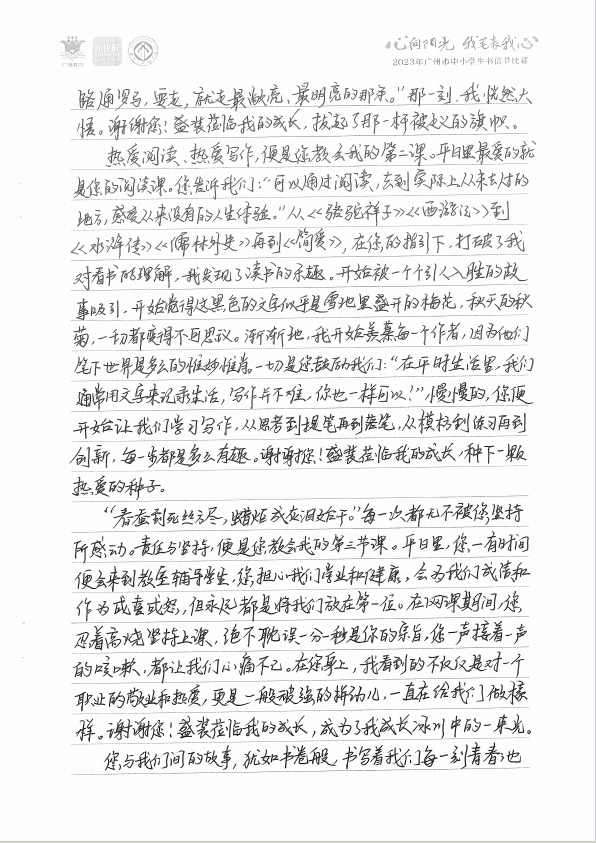 心向阳光 我笔表我心
2023年广州市中小学生书信节比赛
广州教育
路通罗马,要走,就走最敞亮、最明亮的那条。”那一刻,我恍然大
悟。谢谢您!盛装莅临我的成长,拔起了那一杆被贬义的旗帜。
热爱阅读、热爱写作,便是您教会我的第二课。平日里最爱的就
是您的阅读课。您告诉我们:“可以通过阅读,去到实际上从未去过的
地方,感受从来没有的人生体验。”从《骆驼祥子》《西游记》到
《水浒传》《儒林外史》再到《简爱》,在您的指引下,打破了我
对看书的理解,我发现了读书的乐趣。开始被一个个引人入胜的故
事吸引,开始觉得这黑色的文字似乎是雪地里盛开的梅花,秋天的秋
菊,一切都变得不可思议。渐渐地,我开始羡慕每一个作者,因为他们
笔下世界是多么的惟妙惟肖。一切是您鼓励我们:“在平时生活里,我们
通常用文字来记录生活,写作并不难,你也一样可以!”慢慢的,您便
开始让我们学习写作,从思考到提笔再到落笔,从模板到练习再到
创新,每一步都是多么有趣。谢谢您!盛装莅临我的成长,种下一颗
热爱的种子。
“春蚕到死丝方尽,蜡炬成灰泪始干。”每一次都无不被您坚持
所感动。责任与坚持,便是您教会我的第三节课。平日里,您一有时间
便会来到教室辅导学生,您担心我们学业和健康,会为我们成绩和
作为或喜或怒,但永远都是将我们放在第一位。在网课期间,您
忍着高烧坚持上课,绝不耽误一分一秒是你的宗旨,您一声接着一声
的咳嗽,都让我们心痛不已。在您身上,我看到的不仅仅是对一个
职业的敬业和热爱,更是一般破强的拼劲儿,一直在给我们做榜
样。谢谢您!盛装莅临我的成长,成为了我成长冰川中的一束光。
您与我们间的故事,犹如书卷般,书写着我们每一刻青春;也